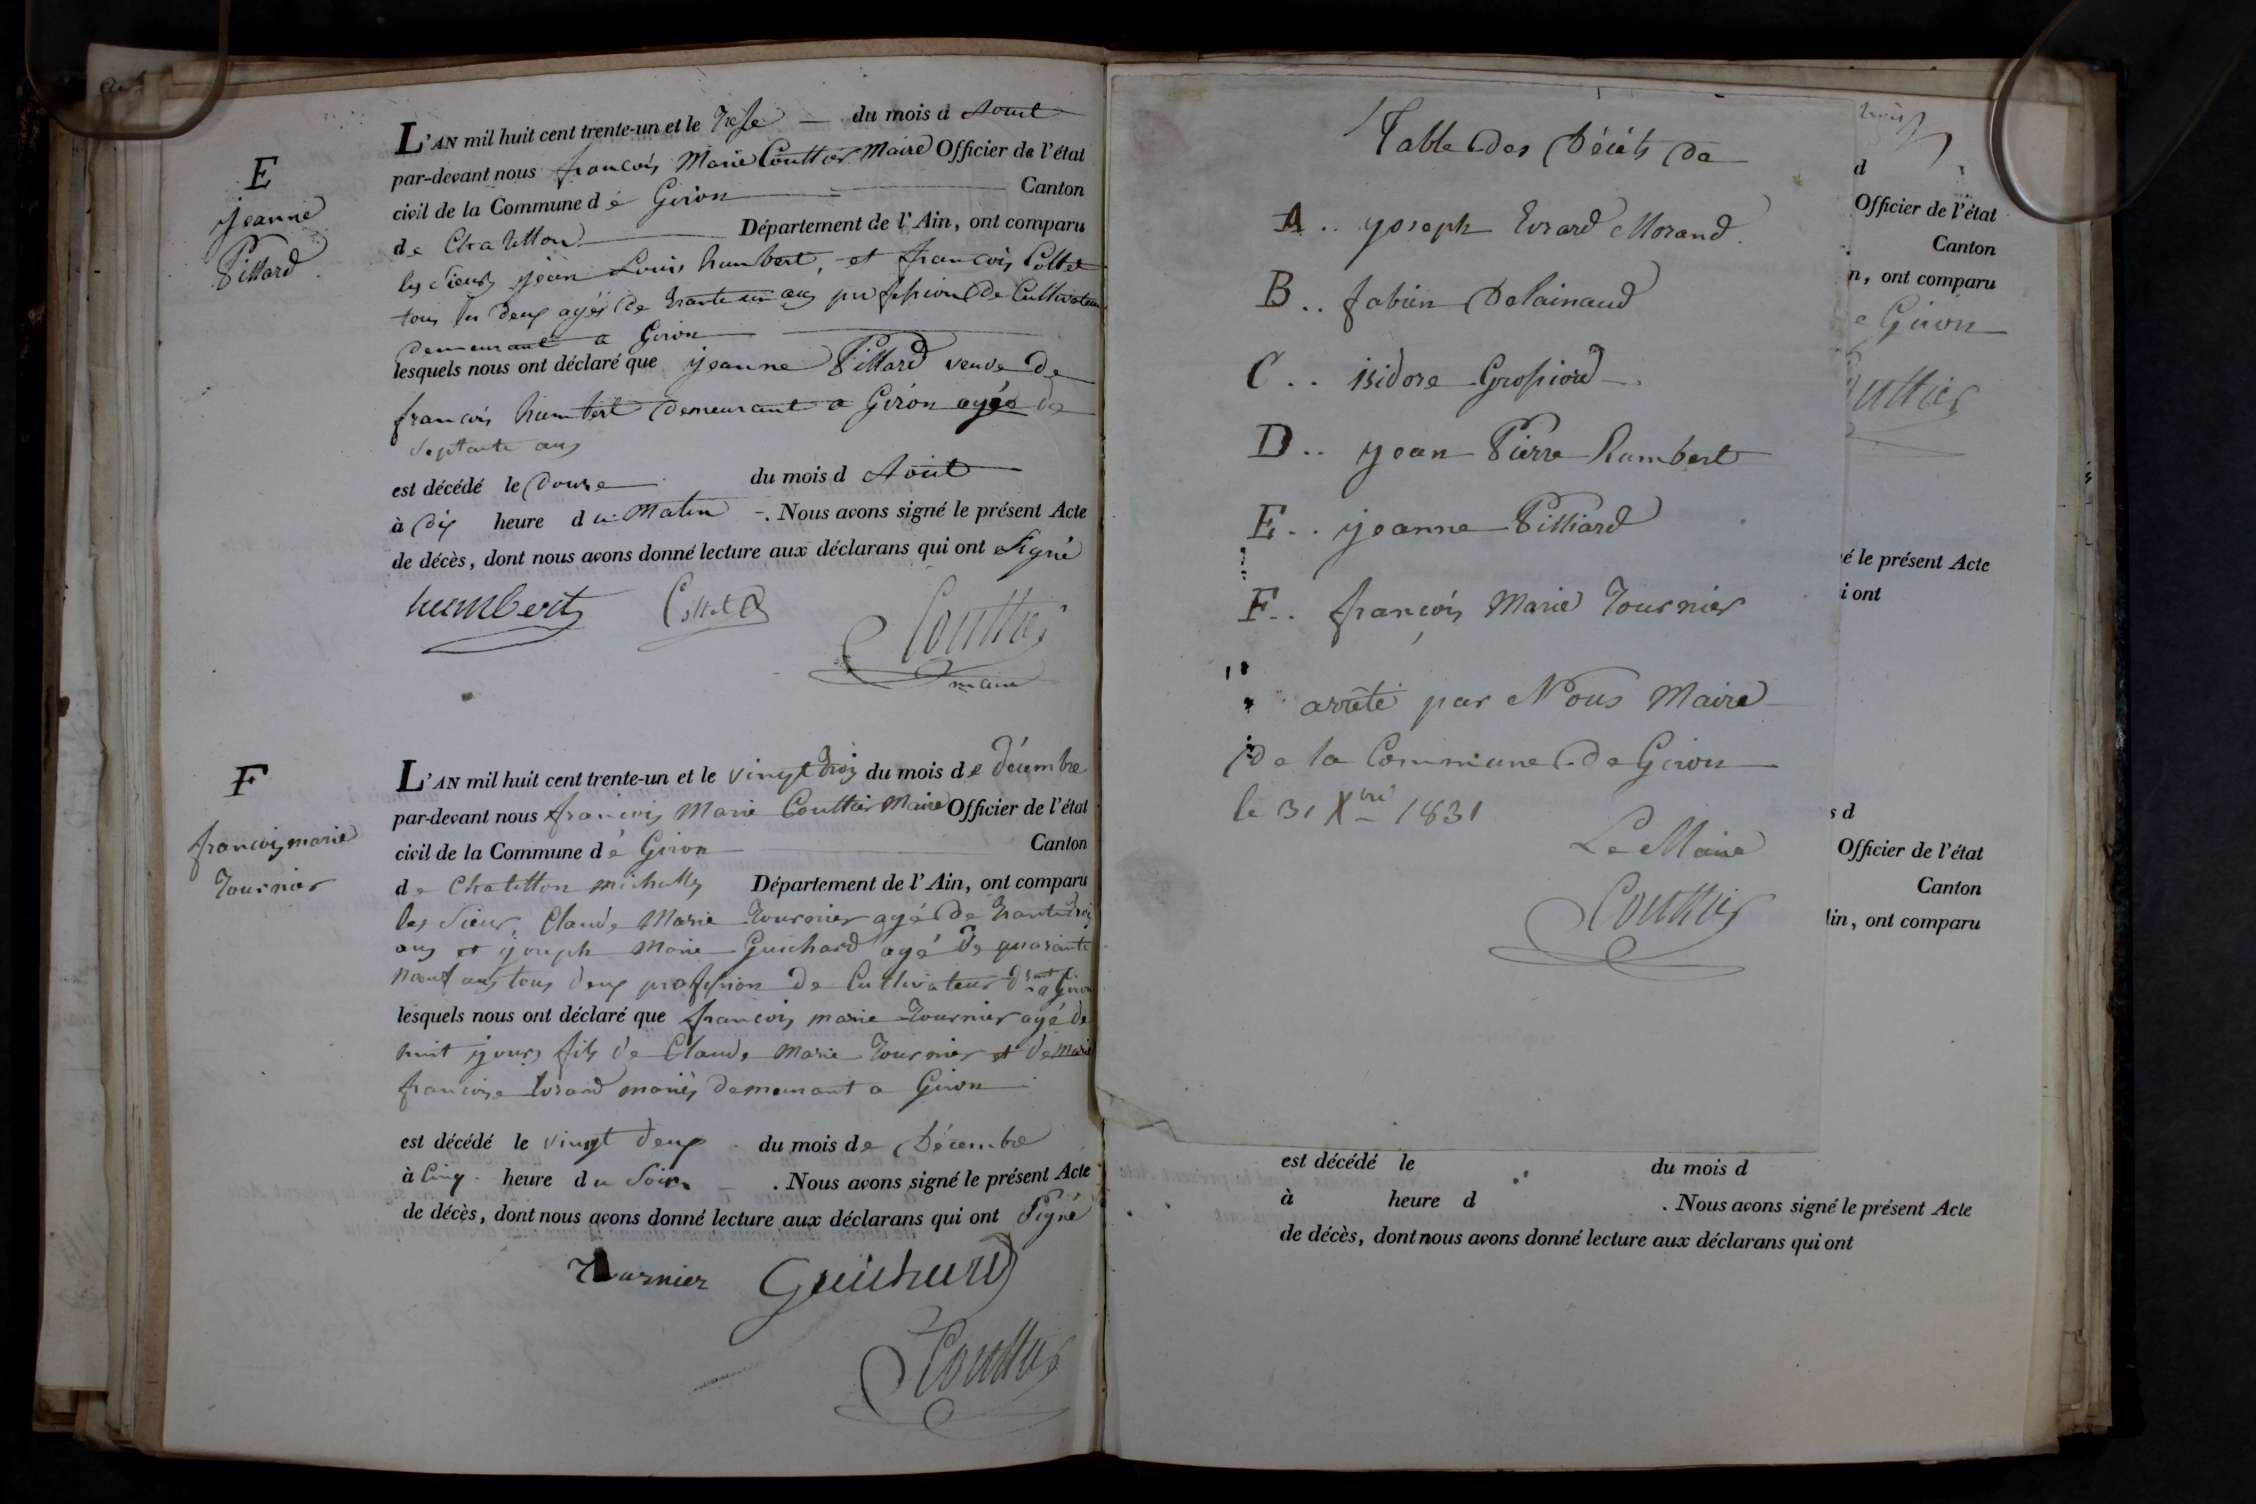 E
jeanne
Pillard
L'AN mil huit cent trente-un et le trese du mois d Aout
par-devant nous françois Marie Couttier Maire Officier de l'état
civil de la Commune d e Giron Canton
de Chatillon Département de l'Ain, ont comparu
les sieurs jean Louis humbert, et françois Collet
tous les deux agés de trante un ans profession de Cultivateur
demeurant a Giron
lesquels nous ont déclaré que jeanne Pillard veuve de
françois humbert demeurant a Giron agée de
septante ans
est décédé le douse du mois d Aout
à dix heure du Matin . Nous avons signé le présent Acte
de décès, dont nous avons donné lecture aux déclarans qui ont signé
humbert Collet Couttier
maire
F
françois marie
Tournier
L'AN mil huit cent trente-un et le vingt trois du mois de décembre
par-devant nous françois Marie Couttier Maire Officier de l'état
civil de la Commune d e Giron Canton
de Chatillon michailly Département de l'Ain, ont comparu
les sieur, Claude Marie Tournier agé de trante trois
ans et joseph Marie Guichard agé de quarante
neuf ans tous deux profession de Cultivateur d.rant a Giron
lesquels nous ont déclaré que françois marie Tournier agé de
huit jours fils de Claude Marie Tournier et de Marie
françoise Evrard mariés demeurant a Giron
est décédé le vingt deux du mois de Décembre
à Cinq heure du Soir . Nous avons signé le présent Acte
de décès, dont nous avons donné lecture aux déclarans qui ont Signé
Tournier Guichard
Couttier
Table des Décéts de
A .. joseph Evrard Morand
B .. fabien Delainaud
C .. isidore Grosfiord
D .. jean Pierre humbert
E .. jeanne Pilliard
F .. françois Marie Tournier
arrêté par Nous Maire
De la Commune de Giron
le 31 Xbre 1831
Le Maire
Couttier
d
Officier de l'état
Canton
n, ont comparu
e Giron
uttier
é le présent Acte
i ont
s d
Officier de l'état
Canton
lin, ont comparu
est décédé le du mois d
à heure d . Nous avons signé le présent Acte
de décès, dont nous avons donné lecture aux déclarans qui ont